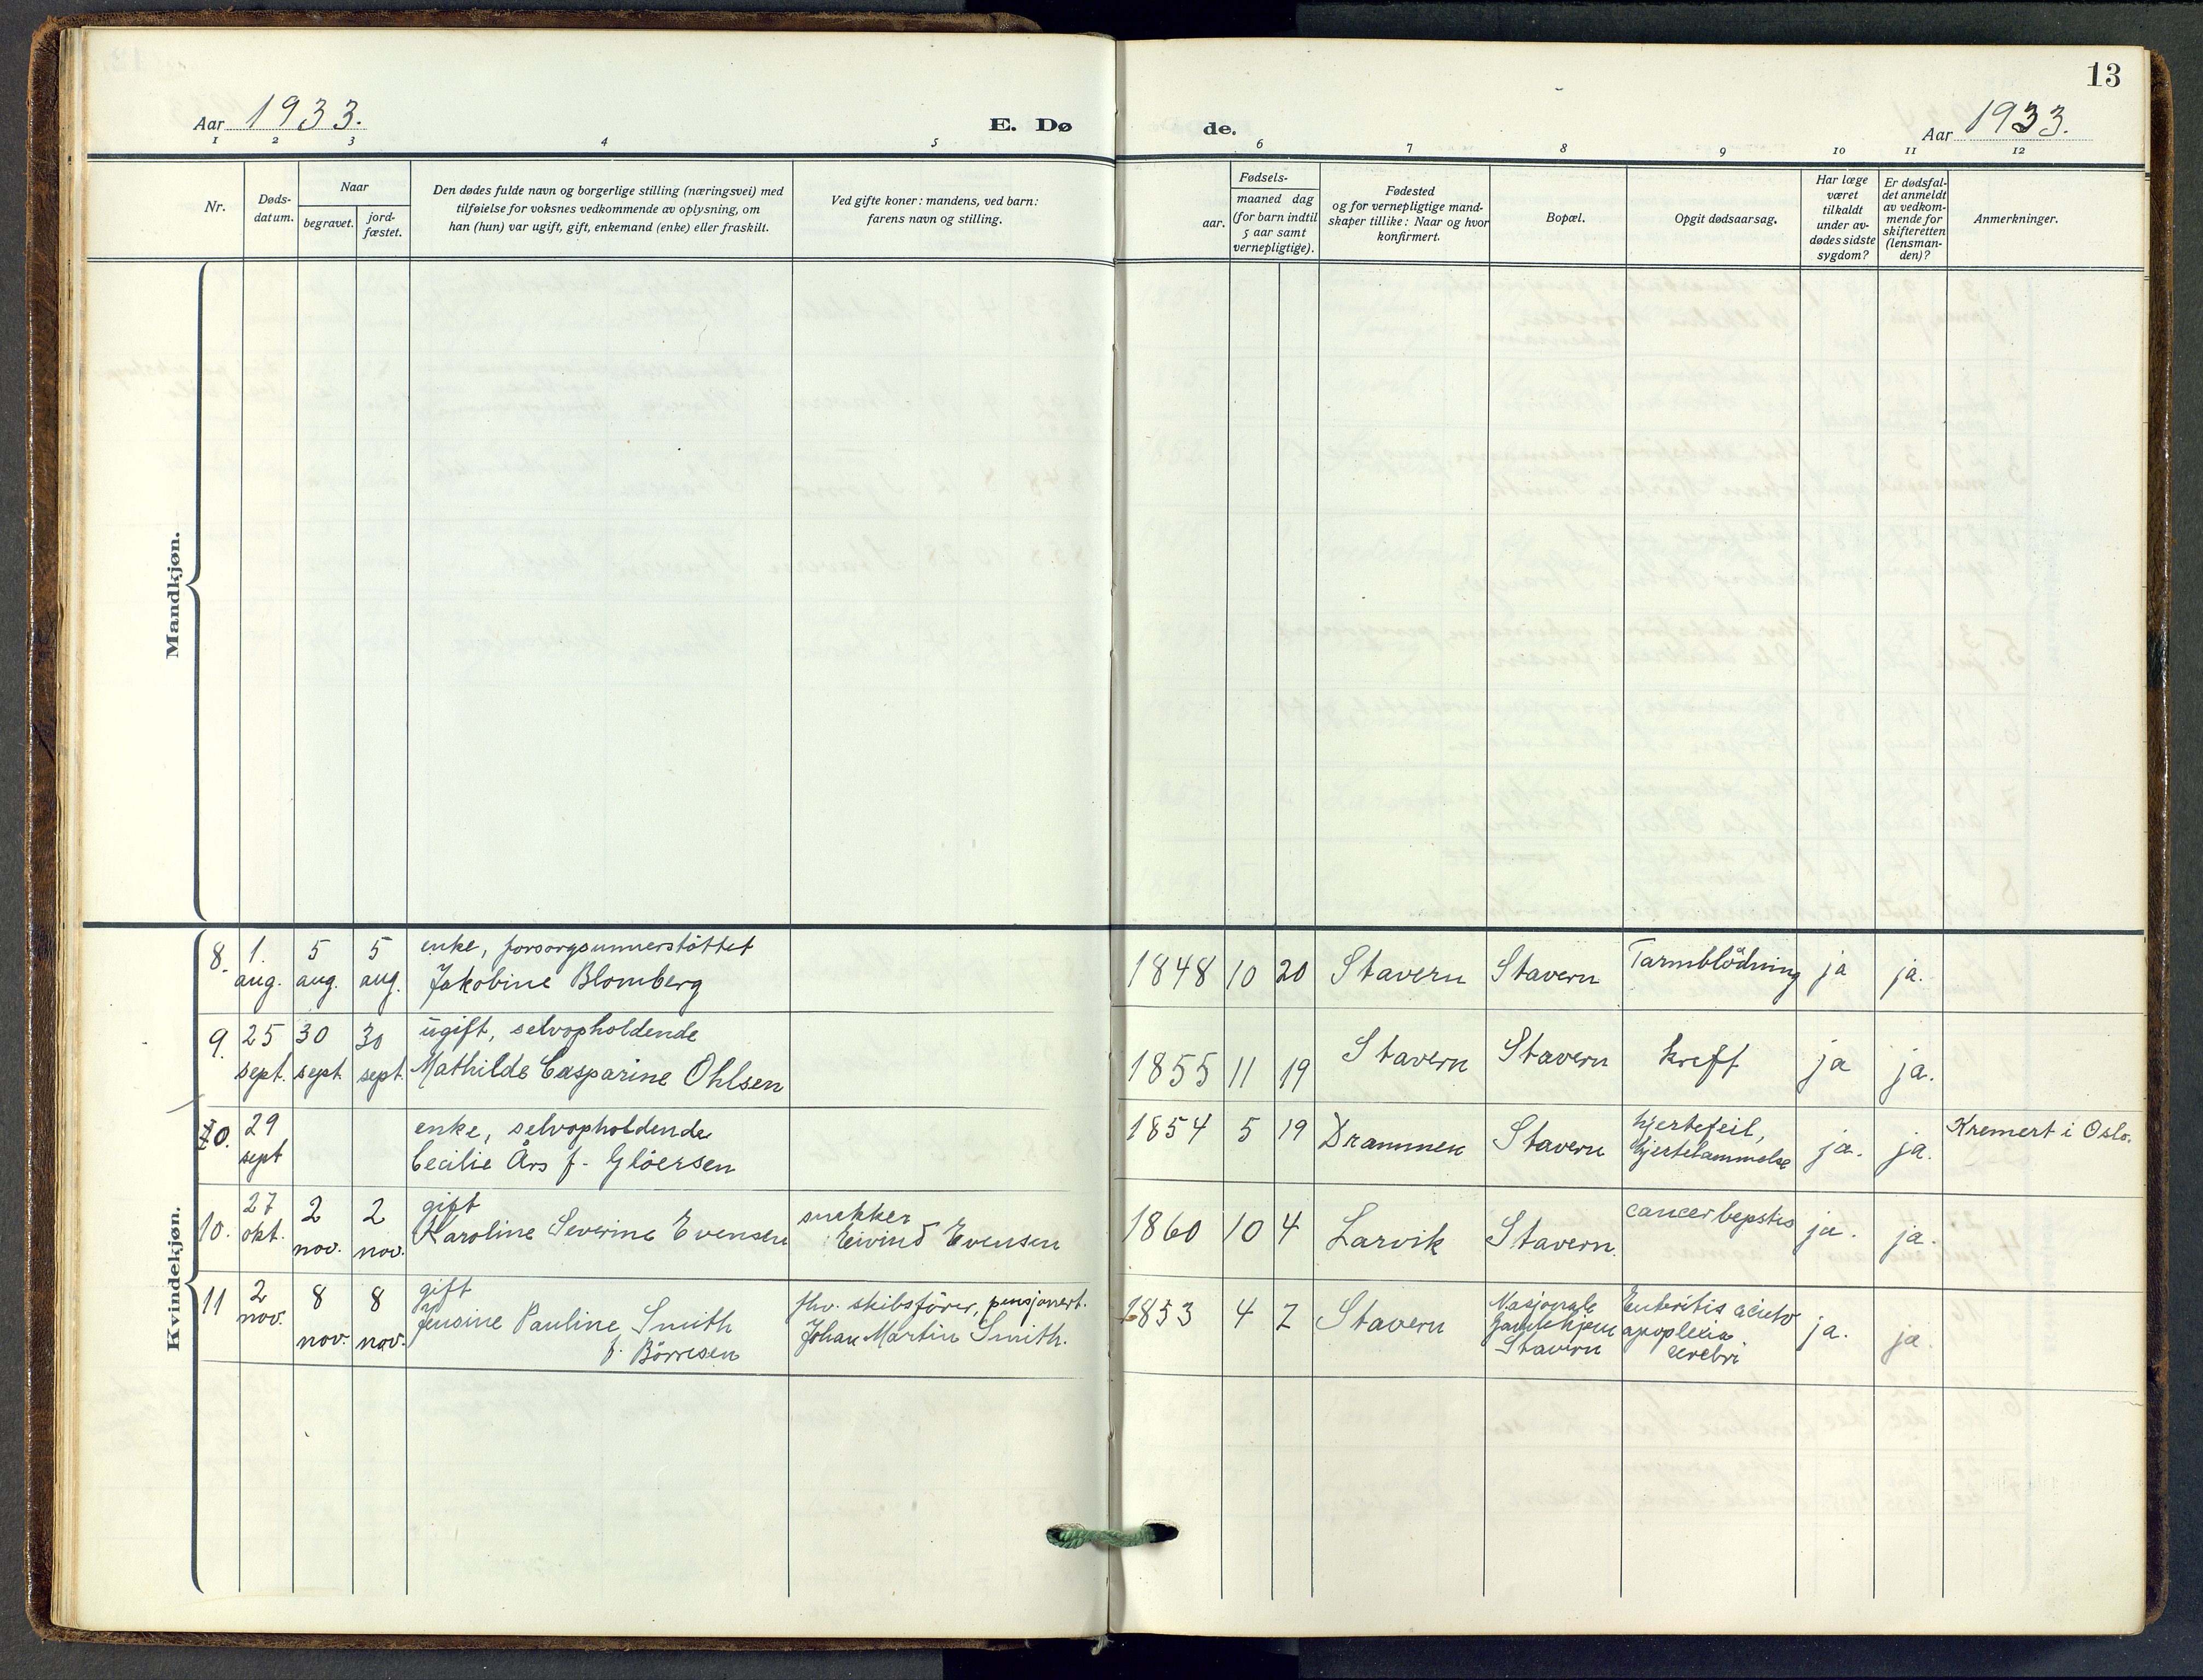 13
Aar 1933.
E. Døde.
Aar 1933.
1 2 3 4 5 6 7 8 9 10 11 12
Nr.
Døds-
datum.
Naar
begravet.
jord-
fæstet.
Den dødes fulde navn og borgerlige stilling (næringsvei) med
tilføielse for voksnes vedkommende av oplysning, om
han (hun) var ugift, gift, enkemand (enke) eller fraskilt.
Ved gifte koner: mandens, ved barn:
farens navn og stilling.
Fødsels-
aar.
maaned dag
(for barn indtil
5 aar samt
vernepligtige).
Fødested
og for vernepligtige mand-
skaper tillike: Naar og hvor
konfirmert.
Bopæl.
Opgit dødsaarsag.
Har læge
været
tilkaldt
under av-
dødes sidste
sygdom?
Er dødsfal-
det anmeldt
av vedkom-
mende for
skifteretten
(lensman-
den)?
Anmerkninger.
Mandkjøn.
Kvindekjøn.
8. 1. aug. 5 aug. 5 aug.
enke, forsorgsunnerstöttet
Jakobine Blomberg
1848 10 20 Stavern Stavern Tarmblödning ja ja.
9. 25 sept. 30 sept. 30 sept.
ugift, selvopholdende
Mathilde Casparine Ohlsen
1855 11 19 Stavern Stavern kreft ja ja.
10. 29 sept
enke, selvopholdende
Cecilie Års f. Glöersen
1854 5 19 Drammen Stavern hjertefeil,
hjertelammelse ja. ja. Kremert i Oslo.
10. 27 okt. 2 nov. 2 nov.
gift
Karoline Severine Evensen
snekker
Eivind Evensen
1860 10 4 Larvik Stavern. cancer ja. ja.
11 2 nov. 8 nov. 8 nov.
gift
Jensine Pauline Smith
f. Börresen
fhv. skibsförer, pensjonert.
Johan Martin Smith.
1853 4 2 Stavern
Nasjonale
Gamlehjem
Stavern
Enteritis acuto
apoplexia
cerebri
ja. ja.